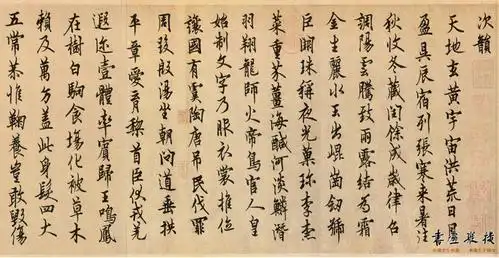 次韻
天地玄黃宇宙洪荒日月
盈昃辰宿列張寒来暑往
秋收冬藏閏餘成歲律召
調陽雲騰致雨露結為霜
金生麗水玉出崐崗劍號
巨闕珠稱夜光菓珍李柰
菜重芥薑海鹹河淡鱗潛
羽翔龍師火帝鳥官人皇
始制文字乃服衣裳推位
讓國有虞陶唐吊民伐罪
周發殷湯坐朝問道垂拱
平章愛育黎首臣伏戎羌
遐迩壹體率賓歸王鳴鳳
在樹白駒食場化被草木
賴及萬方盖此身髮四大
五常恭惟鞠養豈敢毀傷